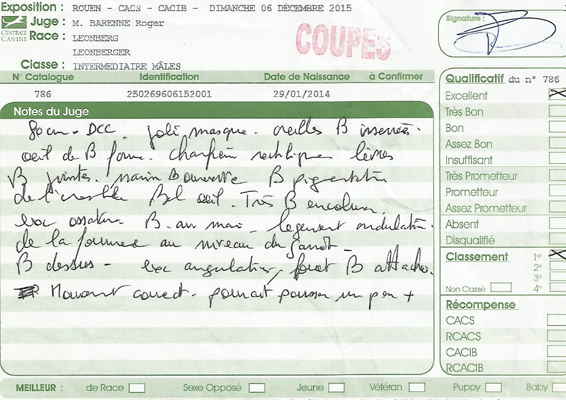 Exposition : ROUEN - CACS - CACIB - DIMANCHE 06 DÉCEMBRE 2015
Juge : M. BARENNE Roger
CENTRALE CANINE
Race : LEONBERG
LEONBERGER
COUPES
Signature :
Classe : INTERMEDIAIRE MÂLES
N° Catalogue Identification Date de Naissance à Confirmer
786 250269606152001 29/01/2014
Notes du Juge
80 cm - DCC. joli masque - oreilles B insérées
oeil de B forme. Chanfrein rectiligne lèvres
B jointes. B pigmentation
de l'ensemble Bl oeil. Très B encolure,
exc ossature. B. légèrement ondulation
de la au niveau du garrot -
B dessus - exc angulation, fouet B attaché.
Mouvement correct - pourrait pousser un peu +
Qualificatif du n° 786
Excellent
Très Bon
Bon
Assez Bon
Insuffisant
Très Prometteur
Prometteur
Assez Prometteur
Absent
Disqualifié
Classement 1er
2e
3e
Non Classé 4e
Récompense
CACS
RCACS
CACIB
RCACIB
MEILLEUR : de Race Sexe Opposé Jeune Vétéran Puppy Baby